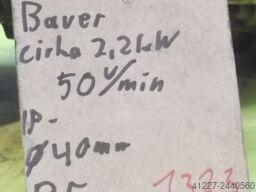 Bauer
cirka 2,2kW
50 U/min
IP-
Ø40mm
1323
41227-2440560